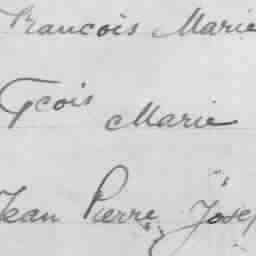 Francois Marie
Gcois Marie
Jean Pierre Josep